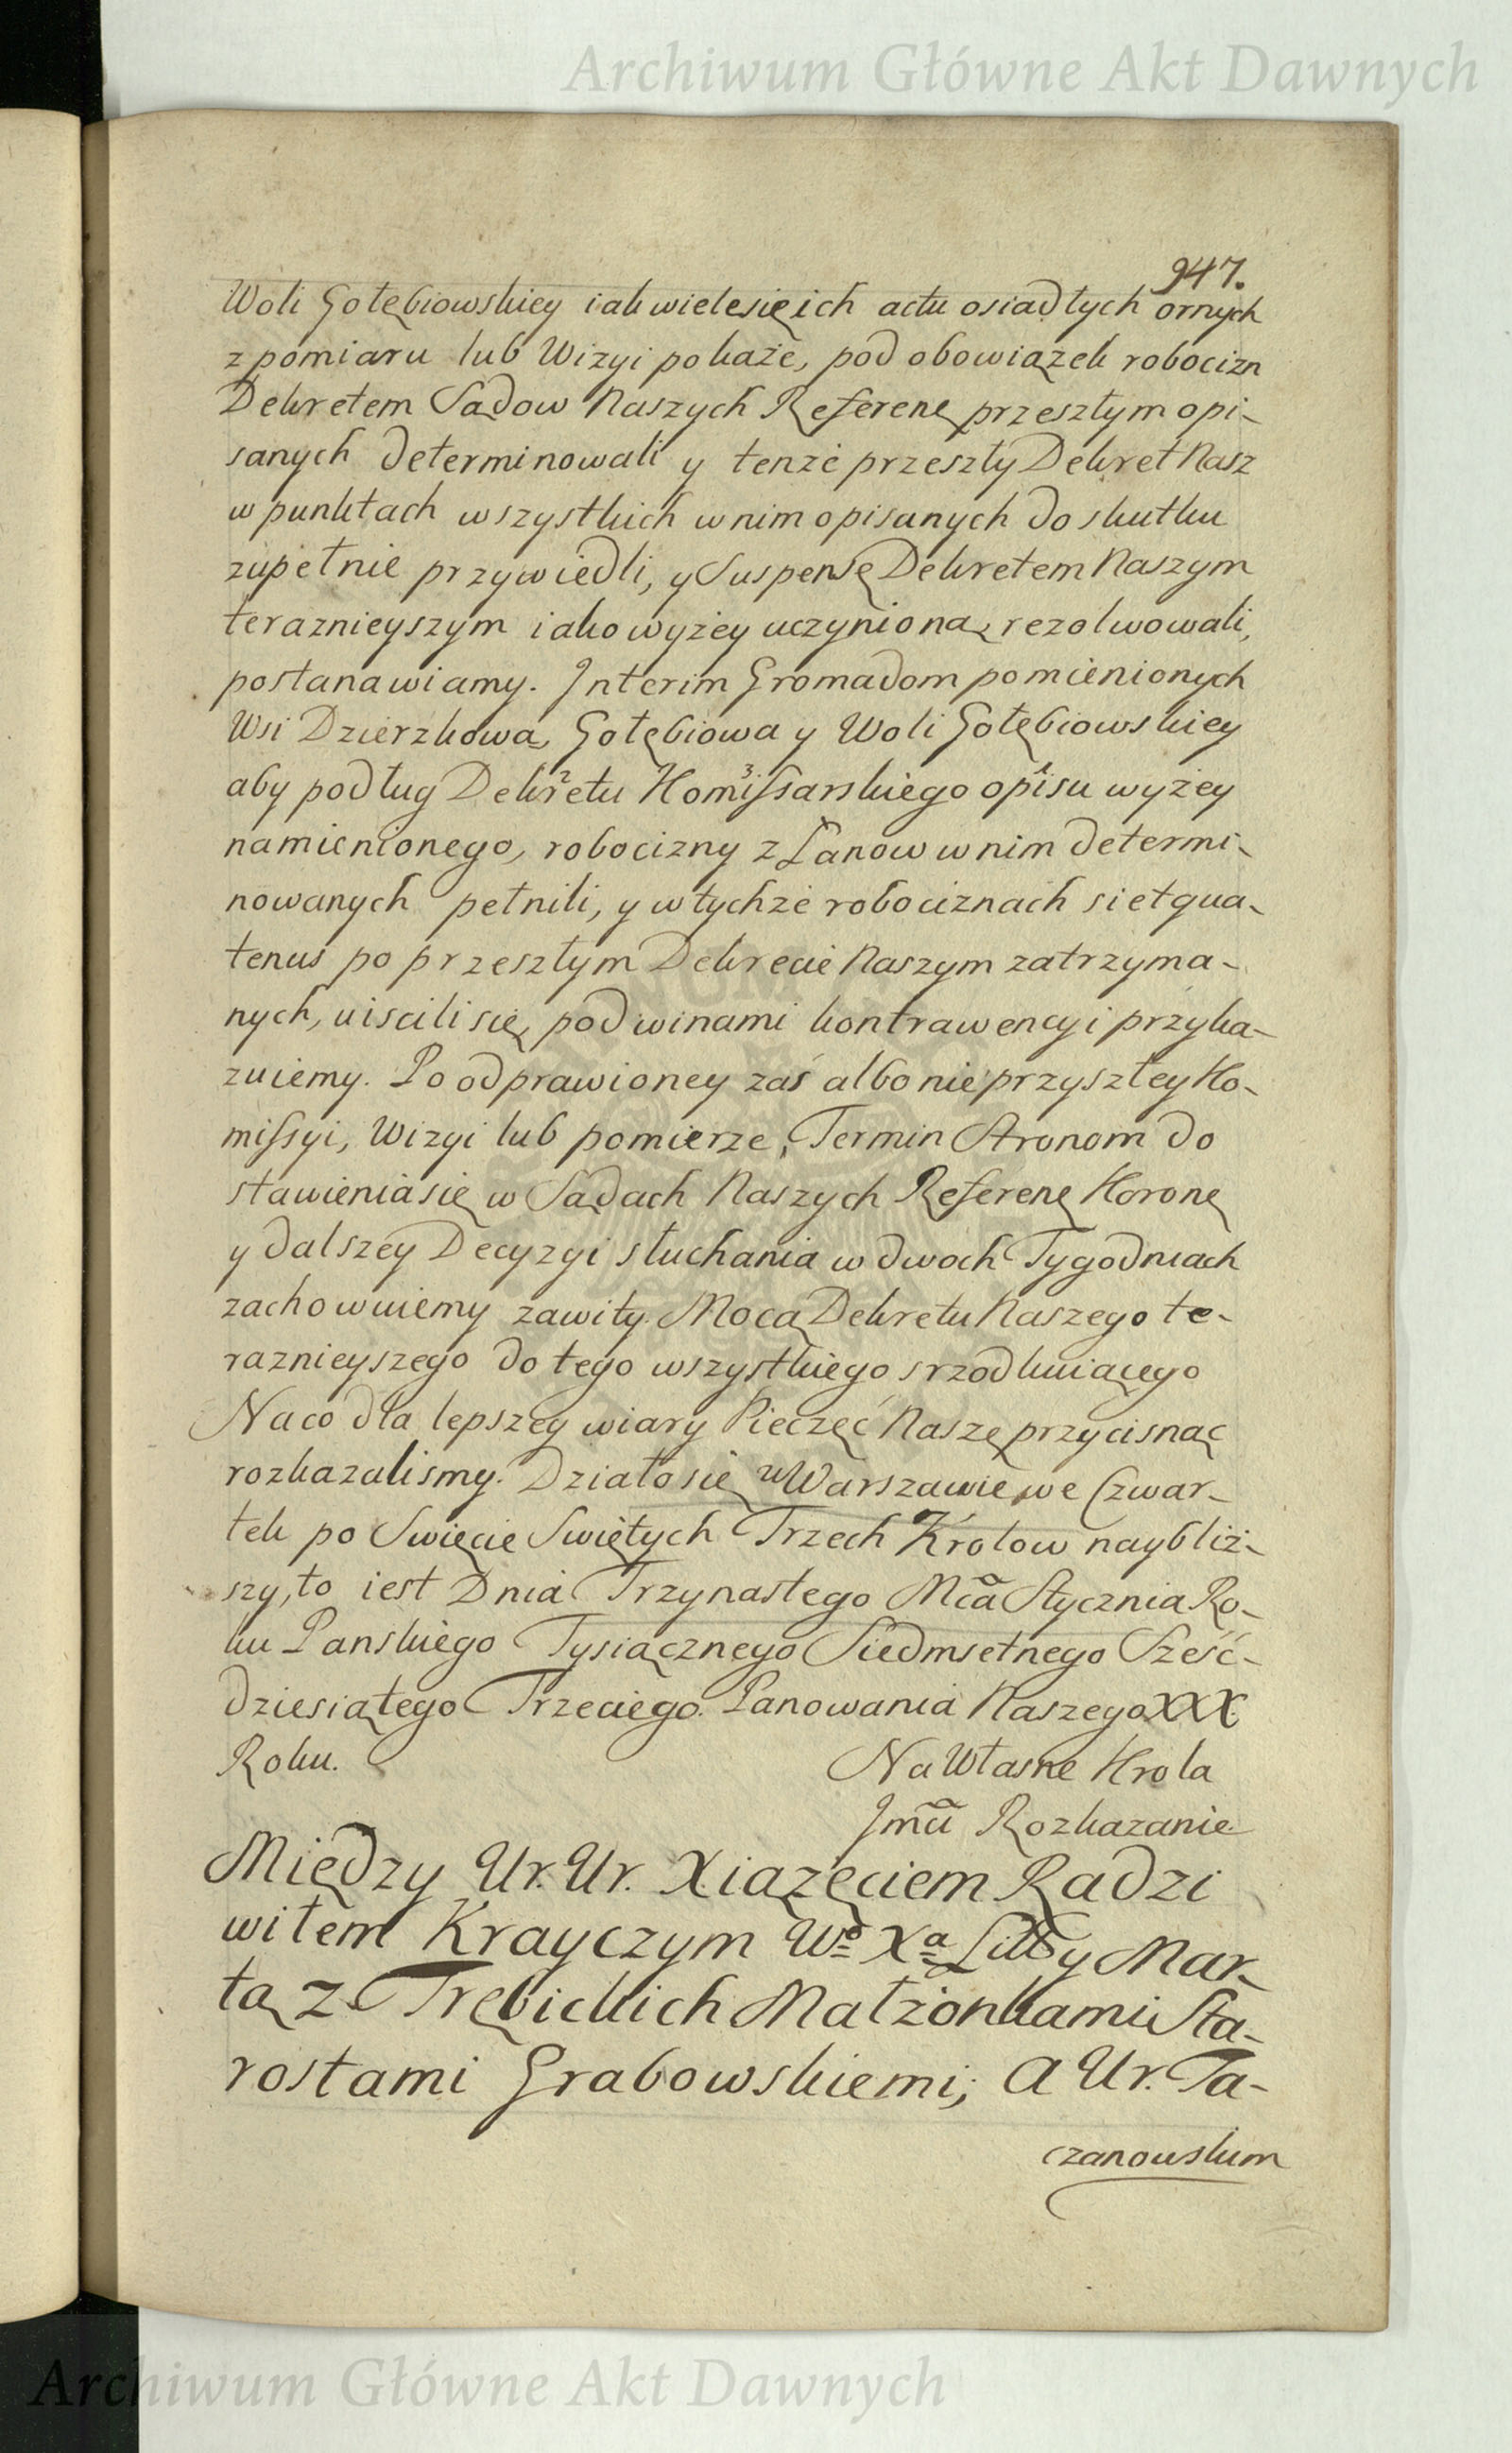 Archiwum Główne Akt Dawnych
947.
Woli Gołębiowskiey iak wiele się ich actu osiadłych ornych
z pomiaru lub Wizyi pokaże, pod obowiązek robocizn
Dekretem Sądow Naszych Referenę przeszłym opi-
sanych determinowali y tenże przeszły Dekret Nasz
w punktach wszystkich w nim opisanych do skutku
zupełnie przywiedli, y Suspensę Dekretem Naszym
teraznieyszym iako wyżey uczynioną rezolwowali,
postanawiamy. Interim Gromadom pomienionych
Wsi Dzierzkowa, Gołębiowa y Woli Gołębiowskiey
aby podług Dekretu 2 Kommissarskiego 3 opisu 1 wyżey
namienionego, robocizny z Łanow w nim determi-
nowanych pełnili, y w tychże robociznach si et qua-
tenus po przeszłym Dekrecie Naszym zatrzyma-
nych, uiscili się, pod winami kontrawencyi przyka-
zuiemy. Po odprawioney zaś albo nie przyszłey Ko-
missyi, Wizyi lub pomierze, Termin Stronom do
stawienia się w Sądach Naszych Referenę Koronę
y dalszey Decyzyi słuchania w dwoch Tygodniach
zachowuiemy zawity. Mocą Dekretu Naszego te-
raznieyszego do tego wszystkiego srzodkuiącego
Na co dla lepszey wiary Pieczęć Naszę przycisnąć
rozkazalismy. Działo się w Warszawie we Czwar-
tek po Swięcie Swiętych Trzech Krolow naybliż-
szy, to iest Dnia Trzynastego Mca Stycznia Ro-
ku Panskiego Tysiącznego Siedmsetnego Sześć-
dziesiątego Trzeciego. Panowania Naszego XXX
Roku. Na Własne Krola
Jmci Rozkazanie
Między Ur. Ur. Xiążęciem Radzi
wiłem Krayczym Wo Xa Litt y Mar-
tą z Trębickich Małżonkami Sta-
rostami Grabowskiemi; A Ur. Ta-
czanowskim
Archiwum Główne Akt Dawnych